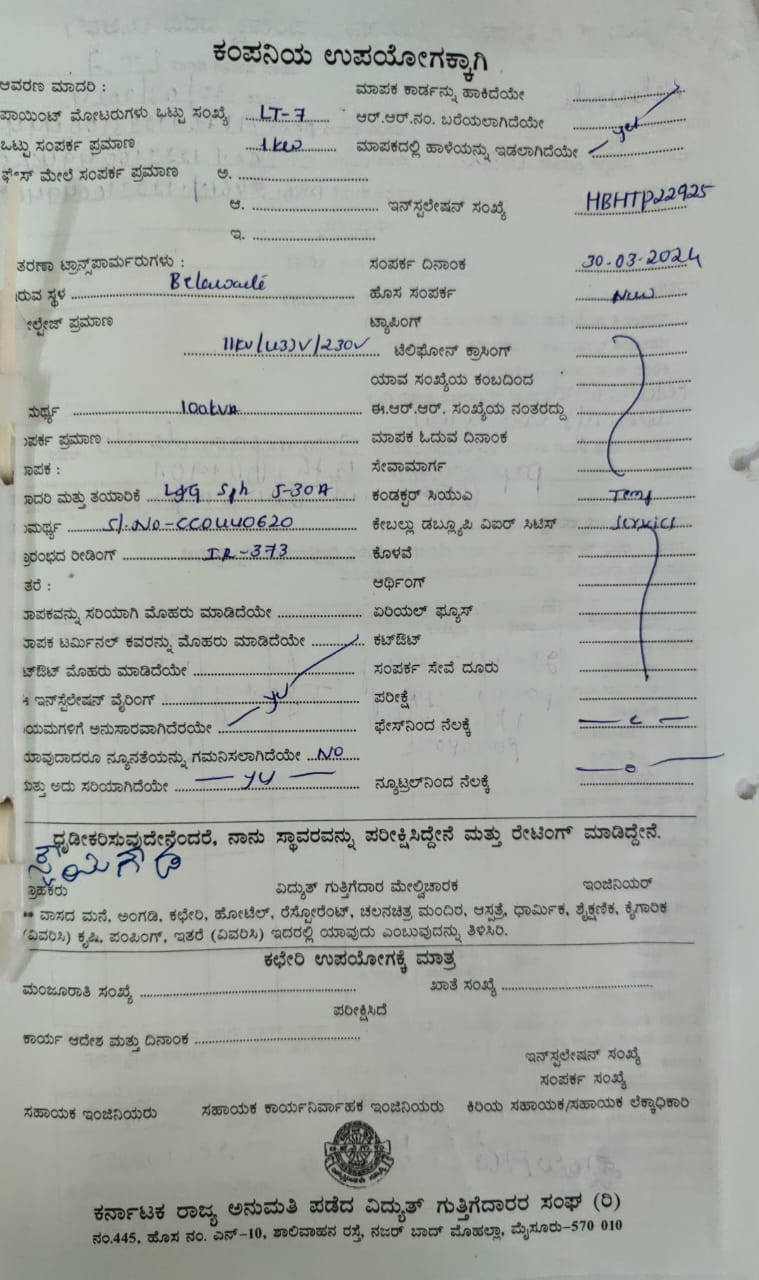 ಕಂಪನಿಯ ಉಪಯೋಗಕ್ಕಾಗಿ
ಆವರಣ ಮಾದರಿ : ಮಾಪಕ ಕಾರ್ಡನ್ನು ಹಾಕಿದೆಯೇ
ಪಾಯಿಂಟ್ ಮೋಟರುಗಳು ಒಟ್ಟು ಸಂಖ್ಯೆ LT-7 ಆರ್.ಆರ್.ನಂ. ಬರೆಯಲಾಗಿದೆಯೇ
ಒಟ್ಟು ಸಂಪರ್ಕ ಪ್ರಮಾಣ 1kw ಮಾಪಕದಲ್ಲಿ ಹಾಳೆಯನ್ನು ಇಡಲಾಗಿದೆಯೇ
ಫೇಸ್ ಮೇಲೆ ಸಂಪರ್ಕ ಪ್ರಮಾಣ ಅ.
ಆ. ಇನ್‌ಸ್ಟಲೇಷನ್ ಸಂಖ್ಯೆ HBHTP22925
ಇ.
ತರಣಾ ಟ್ರಾನ್ಸ್‌ಪಾರ್ಮರುಗಳು : ಸಂಪರ್ಕ ದಿನಾಂಕ 30-03-2024
ರುವ ಸ್ಥಳ ಹೊಸ ಸಂಪರ್ಕ New
ಪ್ರಮಾಣ ಟ್ಯಾಪಿಂಗ್
11KV/433V/230V ಟೆಲಿಫೋನ್ ಕ್ರಾಸಿಂಗ್
ಯಾವ ಸಂಖ್ಯೆಯ ಕಂಬದಿಂದ
ಮರ್ಥ್ಯ 100kVA ಈ.ಆರ್.ಆರ್. ಸಂಖ್ಯೆಯ ನಂತರದ್ದು
ಪರ್ಕ ಪ್ರಮಾಣ ಮಾಪಕ ಓದುವ ದಿನಾಂಕ
ಾಪಕ : ಸೇವಾಮಾರ್ಗ
ಾದರಿ ಮತ್ತು ತಯಾರಿಕೆ L&G Sph 5-30A ಕಂಡಕ್ಟರ್ ಸಿಯುಎ Temp
ಮರ್ಥ್ಯ S/.No-CC0440620 ಕೇಬಲ್ಲು ಡಬ್ಲ್ಯೂಪಿ ವಿಐರ್ ಸಿಟಿಸ್ Service
ಾರಂಭದ ರೀಡಿಂಗ್ IR-373 ಕೊಳವೆ
ತರೆ : ಆರ್ಥಿಂಗ್
ಾಪಕವನ್ನು ಸರಿಯಾಗಿ ಮೊಹರು ಮಾಡಿದೆಯೇ ಏರಿಯಲ್ ಫ್ಯೂಸ್
ಾಪಕ ಟರ್ಮಿನಲ್ ಕವರನ್ನು ಮೊಹರು ಮಾಡಿದೆಯೇ ಕಟ್‌ಔಟ್
ಟ್‌ಔಟ್ ಮೊಹರು ಮಾಡಿದೆಯೇ ಸಂಪರ್ಕ ಸೇವೆ ದೂರು
ಇನ್‌ಸ್ಟಲೇಷನ್ ವೈರಿಂಗ್ ಪರೀಕ್ಷೆ
ಯಮಗಳಿಗೆ ಅನುಸಾರವಾಗಿದೆರಯೇ ಫೇಸ್‌ನಿಂದ ನೆಲಕ್ಕೆ
ಯಾವುದಾದರೂ ನ್ಯೂನತೆಯನ್ನು ಗಮನಿಸಲಾಗಿದೆಯೇ NO
ಮತ್ತು ಅದು ಸರಿಯಾಗಿದೆಯೇ ನ್ಯೂಟ್ರಲ್‌ನಿಂದ ನೆಲಕ್ಕೆ
ಧೃಡೀಕರಿಸುವುದೇನೆಂದರೆ, ನಾನು ಸ್ಥಾವರವನ್ನು ಪರೀಕ್ಷಿಸಿದ್ದೇನೆ ಮತ್ತು ರೇಟಿಂಗ್ ಮಾಡಿದ್ದೇನೆ.
ಗ್ರಾಹಕರು ವಿದ್ಯುತ್ ಗುತ್ತಿಗೆದಾರ ಮೇಲ್ವಿಚಾರಕ ಇಂಜಿನಿಯರ್
** ವಾಸದ ಮನೆ, ಅಂಗಡಿ, ಕಛೇರಿ, ಹೋಟೆಲ್, ರೆಸ್ಟೋರೆಂಟ್, ಚಲನಚಿತ್ರ ಮಂದಿರ, ಆಸ್ಪತ್ರೆ, ಧಾರ್ಮಿಕ, ಶೈಕ್ಷಣಿಕ, ಕೈಗಾರಿಕ
(ವಿವರಿಸಿ) ಕೃಷಿ, ಪಂಪಿಂಗ್, ಇತರೆ (ವಿವರಿಸಿ) ಇದರಲ್ಲಿ ಯಾವುದು ಎಂಬುವುದನ್ನು ತಿಳಿಸಿರಿ.
ಕಛೇರಿ ಉಪಯೋಗಕ್ಕೆ ಮಾತ್ರ
ಮಂಜೂರಾತಿ ಸಂಖ್ಯೆ ಖಾತೆ ಸಂಖ್ಯೆ
ಪರೀಕ್ಷಿಸಿದೆ
ಕಾರ್ಯ ಆದೇಶ ಮತ್ತು ದಿನಾಂಕ
ಇನ್‌ಸ್ಟಲೇಷನ್ ಸಂಖ್ಯೆ
ಸಂಪರ್ಕ ಸಂಖ್ಯೆ
ಸಹಾಯಕ ಇಂಜಿನಿಯರು ಸಹಾಯಕ ಕಾರ್ಯನಿರ್ವಾಹಕ ಇಂಜಿನಿಯರು ಕಿರಿಯ ಸಹಾಯಕ/ಸಹಾಯಕ ಲೆಕ್ಕಾಧಿಕಾರಿ
ಕರ್ನಾಟಕ ರಾಜ್ಯ ಅನುಮತಿ ಪಡೆದ ವಿದ್ಯುತ್ ಗುತ್ತಿಗೆದಾರರ ಸಂಘ (ರಿ)
ನಂ.445, ಹೊಸ ನಂ. ಎನ್-10, ಶಾಲಿವಾಹನ ರಸ್ತೆ, ನಜರ್ ಬಾದ್ ಮೊಹಲ್ಲಾ, ಮೈಸೂರು-570 010